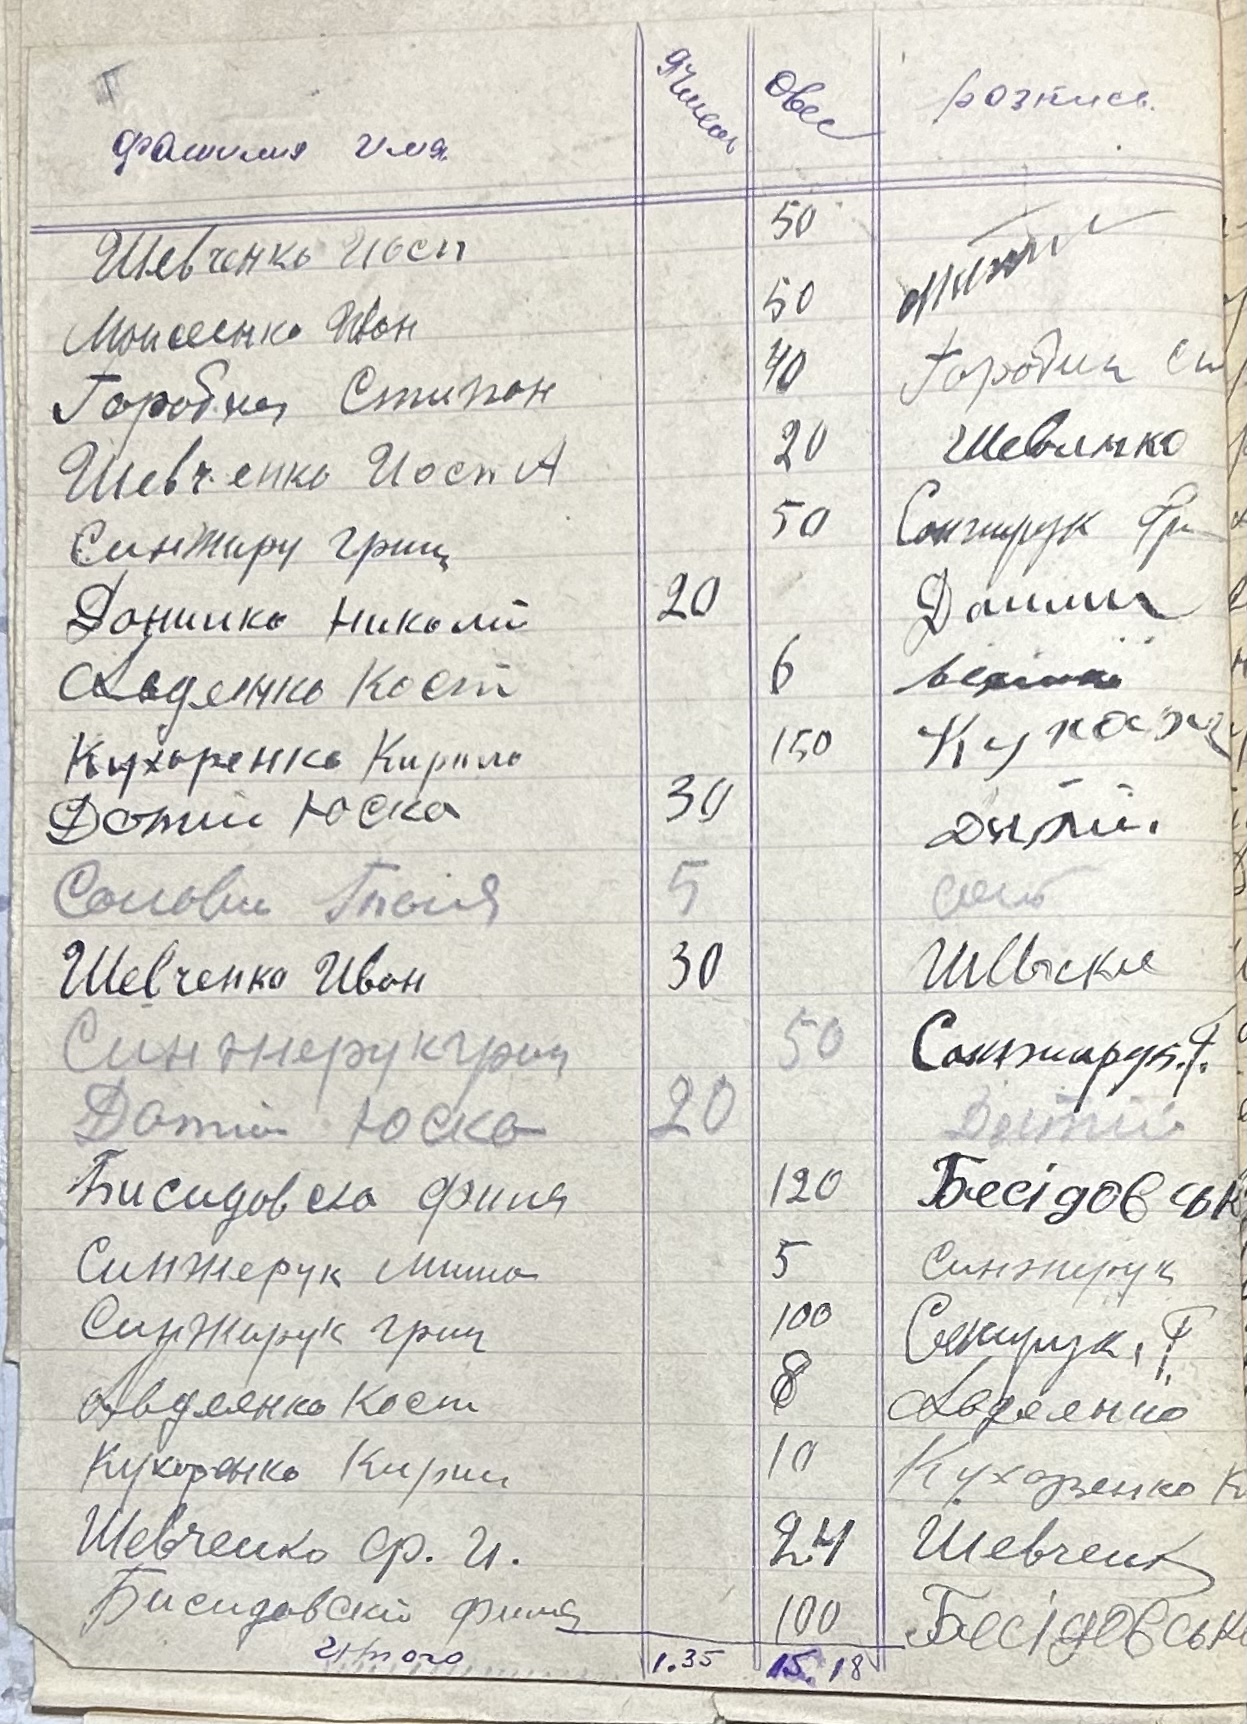 фамилия имя Ячмень Овес розпись
Шевченко Иосп 50
Моисеенко Иван 50
Горобец Стипан 40 Горобец Ст
Шевченко Иосп А 20 Шевченко
Синжару Гриц 50 Санжарук Гри
Донинко Николй 20
Авдеенко Кост 6
Кухоренко Кирило 150 Кухарж
Дотий Юска 30 Дитій.
Соловй 5
Шевченко Ивон 30
Синжерук Гриц 50 Санжарук. Г.
Дотий Юска 20 Дитій
Бисидовско Филя 120 Бесідовськ
Синжерук Миша 5 Синжирук
Синжирук Гриц 100 Г.
Авдеянко Кост 8 Авдеянко
Кухоренко Кирил 10 Кухаренко К
Шевченко Ф. И. 24 Шевченк
Бисидовскй Филя 100 Бесідовськ
Итого 1.35 15.18